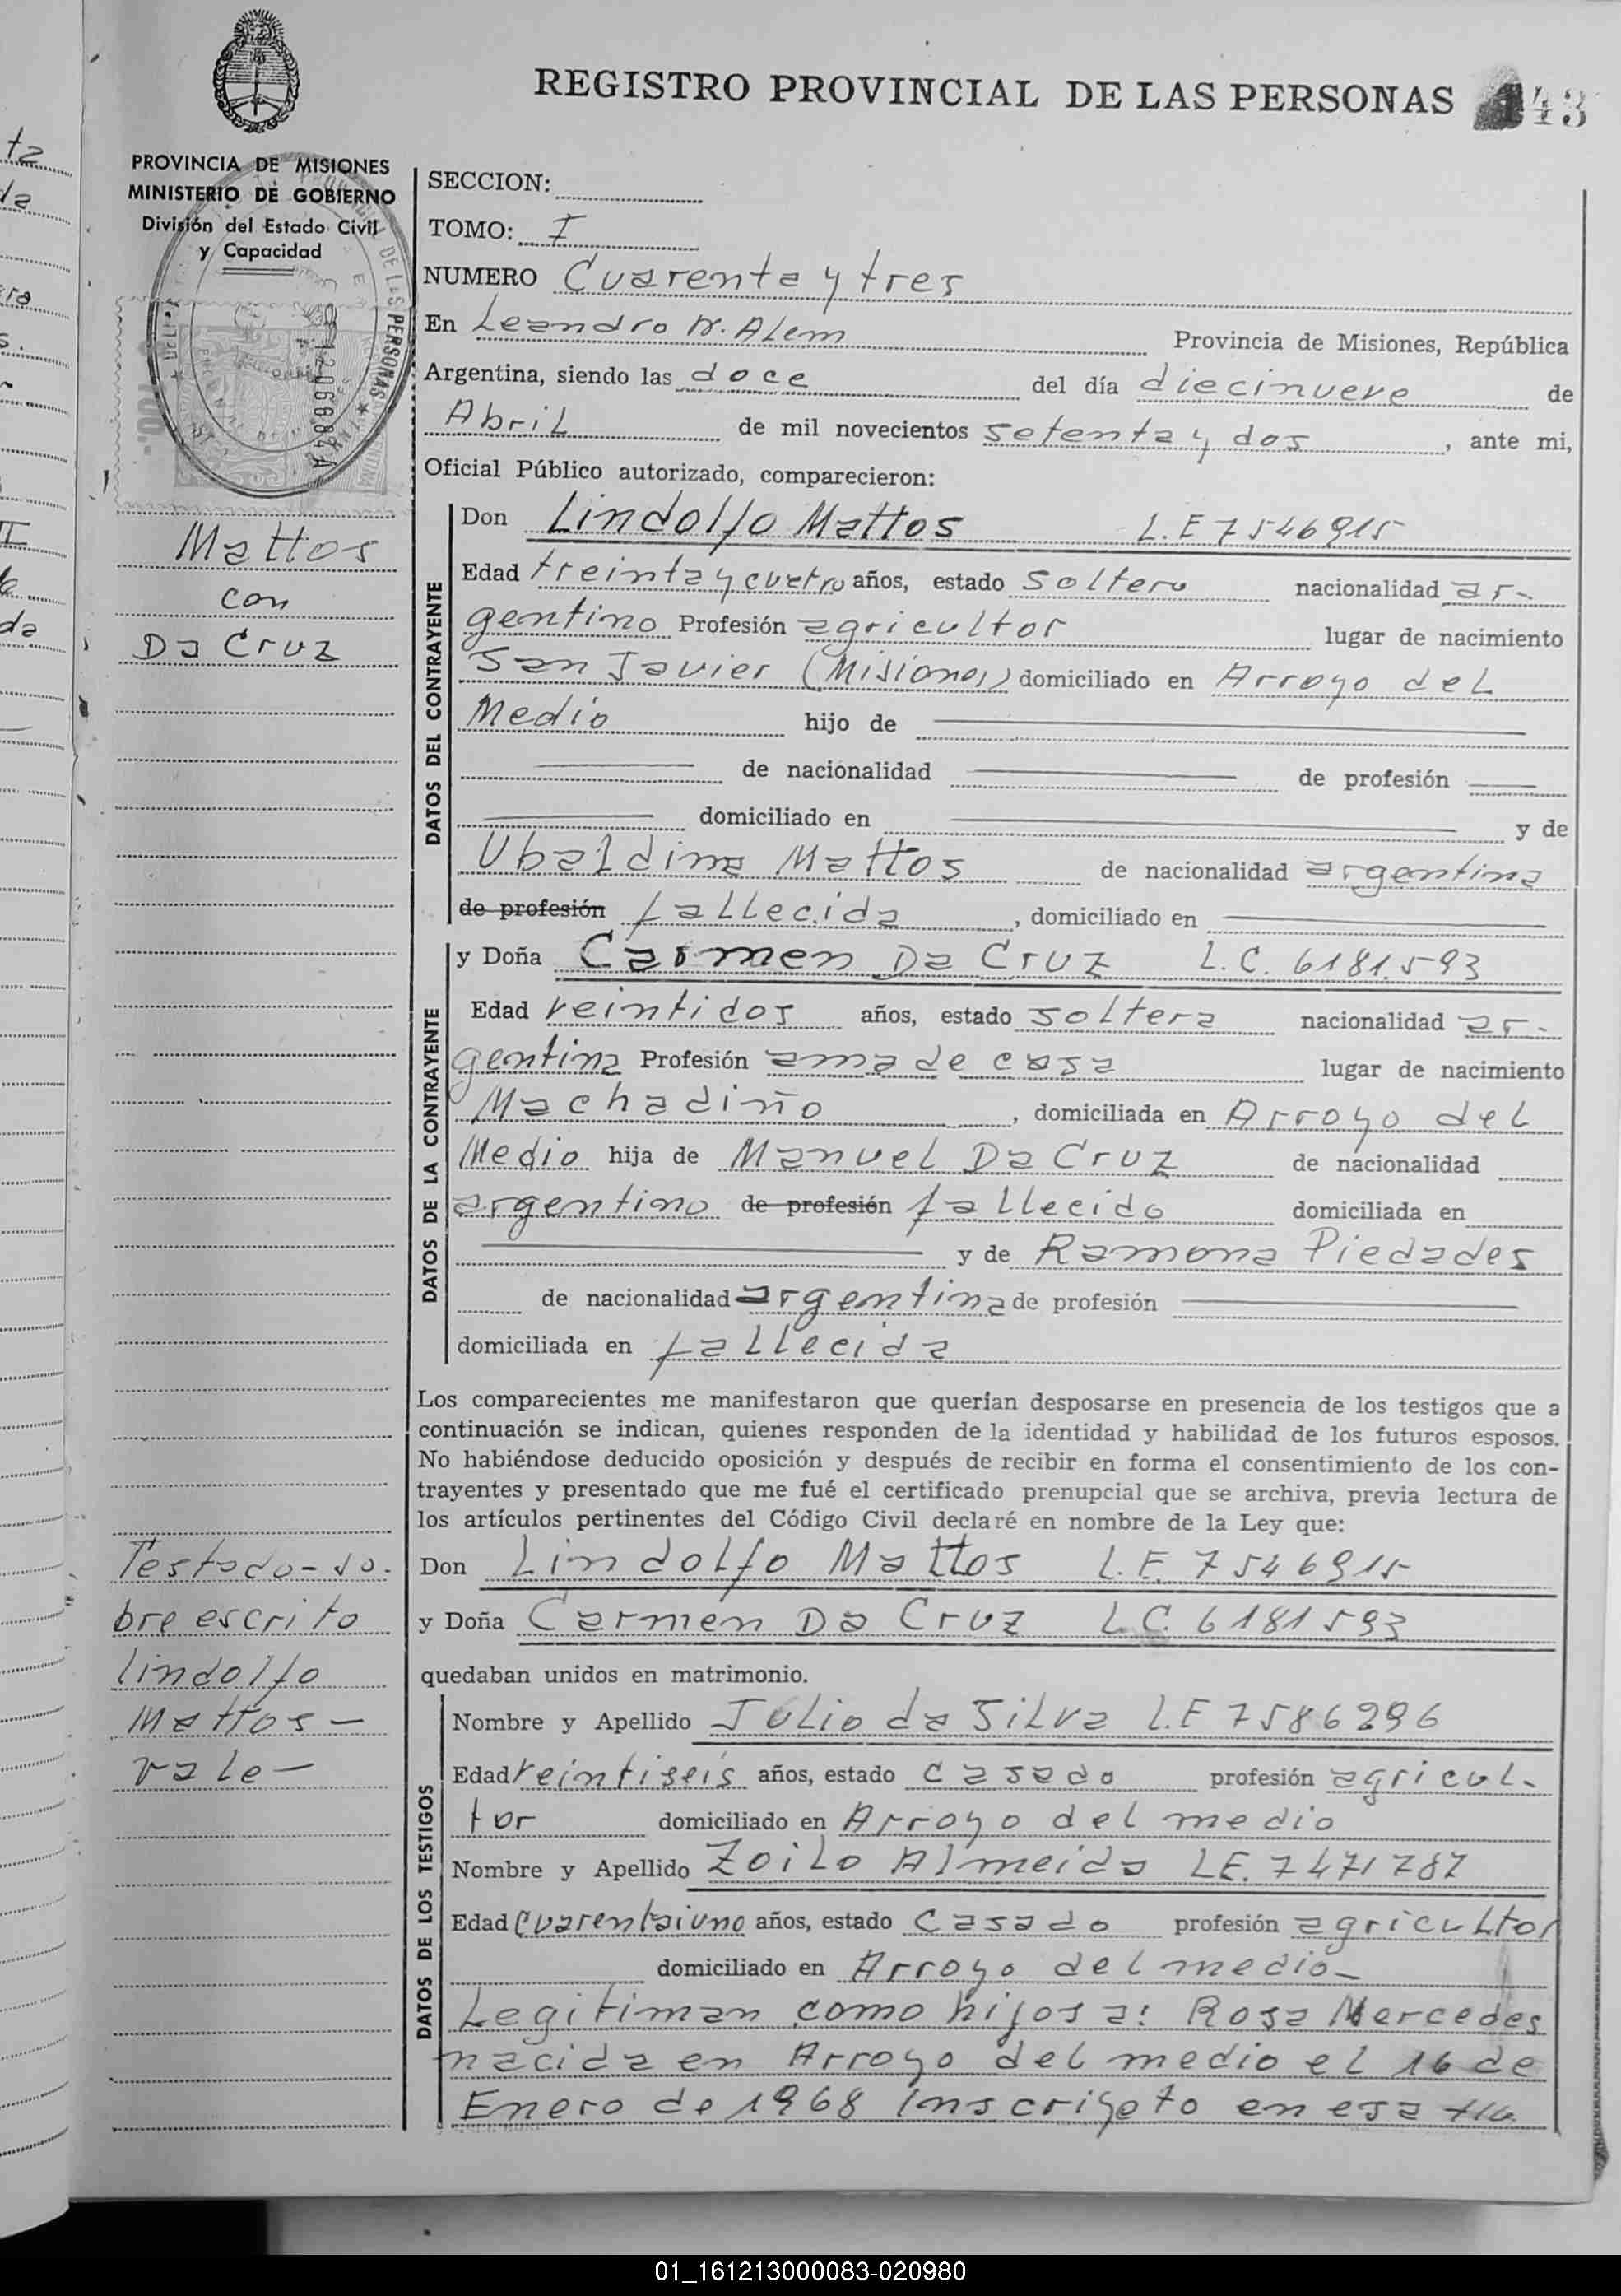 REGISTRO PROVINCIAL DE LAS PERSONAS 143
PROVINCIA DE MISIONES
MINISTERIO DE GOBIERNO
División del Estado Civil
y Capacidad
SECCION:
TOMO: I
NUMERO Cuarenta y tres
En Leandro N. Alem Provincia de Misiones, República
Argentina, siendo las doce del día diecinueve de
Abril de mil novecientos setenta y dos, ante mi,
Oficial Público autorizado, comparecieron:
Mattos
con
Da Cruz
DATOS DEL CONTRAYENTE
Don Lindolfo Mattos L.E 7546915
Edad treinta y cuatro años, estado soltero nacionalidad ar-
gentino Profesión agricultor lugar de nacimiento
San Javier (Misiones) domiciliado en Arroyo del
Medio hijo de
de nacionalidad de profesión
domiciliado en y de
Ubaldina Mattos de nacionalidad argentina
de profesión fallecida, domiciliado en
DATOS DE LA CONTRAYENTE
y Doña Carmen Da Cruz L.C. 6181.593
Edad veintidos años, estado soltera nacionalidad ar-
gentina Profesión ama de casa lugar de nacimiento
Machadiño, domiciliada en Arroyo del
Medio hija de Manuel Da Cruz de nacionalidad
argentino de profesión fallecido domiciliada en
y de Ramona Piedades
de nacionalidad argentina de profesión
domiciliada en fallecida
Los comparecientes me manifestaron que querían desposarse en presencia de los testigos que a
continuación se indican, quienes responden de la identidad y habilidad de los futuros esposos.
No habiéndose deducido oposición y después de recibir en forma el consentimiento de los con-
trayentes y presentado que me fué el certificado prenupcial que se archiva, previa lectura de
los artículos pertinentes del Código Civil declaré en nombre de la Ley que:
Don Lindolfo Mattos L.E. 7546915
y Doña Carmen Da Cruz L.C. 6181593
quedaban unidos en matrimonio.
Testado-so-
bre escrito
lindolfo
Mattos-
vale-
DATOS DE LOS TESTIGOS
Nombre y Apellido Julio da Silva L.E 7586296
Edad veintiseis años, estado casado profesión agricul-
tor domiciliado en Arroyo del medio
Nombre y Apellido Zoilo Almeida LE. 7471787
Edad Cuarentaiuno años, estado casado profesión agricultor
domiciliado en Arroyo del medio-
Legitiman como hijos a: Rosa Mercedes
nacida en Arroyo del medio el 16 de
Enero de 1968 inscripto en esa
01_161213000083-020980